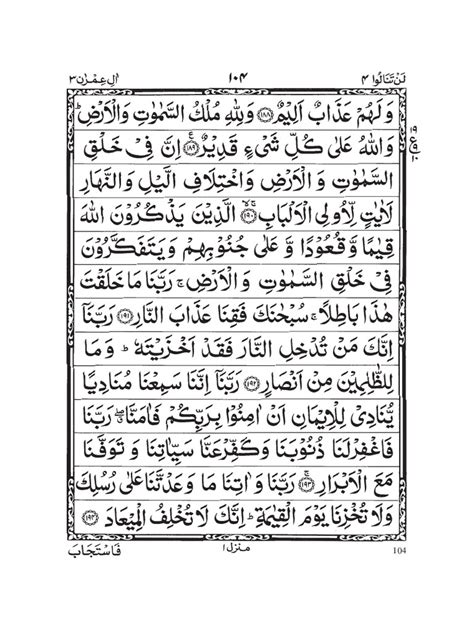 لَنْ تَنَالُوا ٤ ١٠٤ اٰلِ عِمْرٰن ٣
وَ لَهُمْ عَذَابٌ اَلِيْمٌ ﴿۱۸۸﴾ وَلِلّٰهِ مُلْكُ السَّمٰوٰتِ وَالْاَرْضِ ؕ
وَاللّٰهُ عَلٰى كُلِّ شَىْءٍ قَدِيْرٌ ﴿۱۸۹﴾ اِنَّ فِىْ خَلْقِ
السَّمٰوٰتِ وَ الْاَرْضِ وَاخْتِلَافِ الَّيْلِ وَالنَّهَارِ
لَاٰيٰتٍ لِّاُولِى الْاَلْبَابِ ﴿۱۹۰﴾ الَّذِيْنَ يَذْكُرُوْنَ اللّٰهَ
قِيٰمًا وَّ قُعُوْدًا وَّ عَلٰى جُنُوْبِهِمْ وَيَتَفَكَّرُوْنَ
فِىْ خَلْقِ السَّمٰوٰتِ وَ الْاَرْضِ ۚ رَبَّنَا مَا خَلَقْتَ
هٰذَا بَاطِلًا ۚ سُبْحٰنَكَ فَقِنَا عَذَابَ النَّارِ ﴿۱۹۱﴾ رَبَّنَاۤ
اِنَّكَ مَنْ تُدْخِلِ النَّارَ فَقَدْ اَخْزَيْتَهٗ ؕ وَ مَا
لِلظّٰلِمِيْنَ مِنْ اَنْصَارٍ ﴿۱۹۲﴾ رَبَّنَاۤ اِنَّنَا سَمِعْنَا مُنَادِيًا
يُّنَادِىْ لِلْاِيْمَانِ اَنْ اٰمِنُوْا بِرَبِّكُمْ فَاٰمَنَّا ۖ رَبَّنَا
فَاغْفِرْ لَنَا ذُنُوْبَنَا وَكَفِّرْ عَنَّا سَيِّاٰتِنَا وَ تَوَفَّنَا
مَعَ الْاَبْرَارِ ﴿۱۹۳﴾ رَبَّنَا وَ اٰتِنَا مَا وَعَدْتَّنَا عَلٰى رُسُلِكَ
وَلَا تُخْزِنَا يَوْمَ الْقِيٰمَةِ ؕ اِنَّكَ لَا تُخْلِفُ الْمِيْعَادَ ﴿۱۹۴﴾
فَاسْتَجَابَ منزل ١ 104